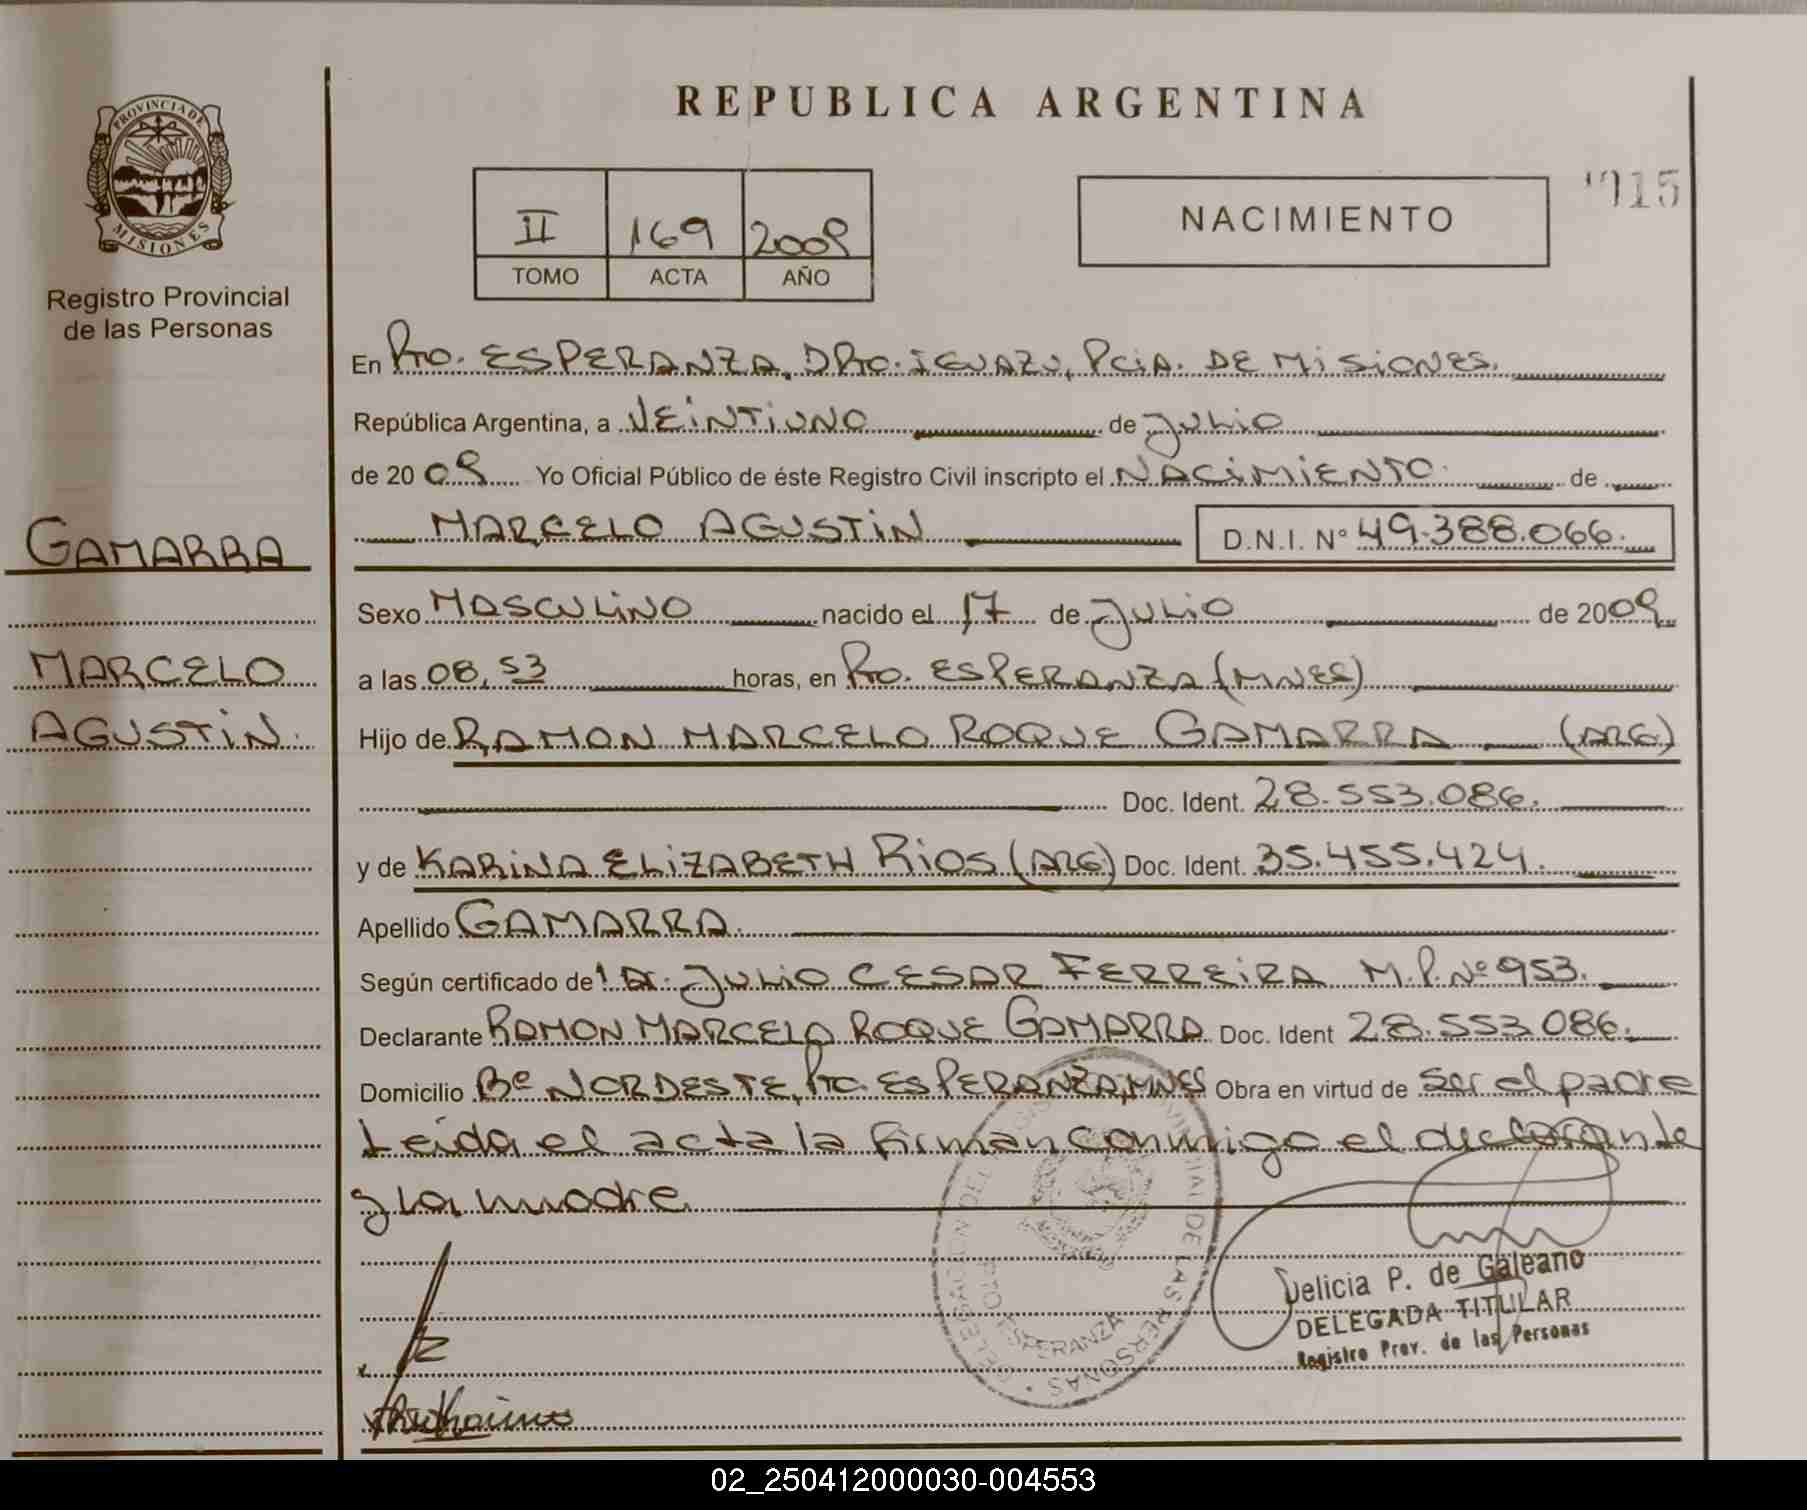 REPUBLICA ARGENTINA
PROVINCIA DE
MISIONES
Registro Provincial
de las Personas
II 169 2009
TOMO ACTA AÑO
NACIMIENTO
915
En Pto. ESPERANZA, DPto. IGUAZU, PCiA. DE MiSiONES.
República Argentina, a VEiNTiUNO de JULiO
de 2009 Yo Oficial Público de éste Registro Civil inscripto el NACiMiENTO. de
MARCELO AGUSTiN D.N.I. N° 49.388.066.
GAMARRA
Sexo MASCULiNO nacido el 17 de JULiO de 2009
MARCELO
a las 08,53 horas, en Pto. ESPERANZA (MNES)
AGUSTiN.
Hijo de RAMON MARCELO ROQUE GAMARRA (ARG)
Doc. Ident. 28.553.086.
y de KARiNA ELiZABETH RiOS (ARG) Doc. Ident. 35.455.424.
Apellido GAMARRA.
Según certificado de Dr. JULiO CESAR FERREiRA M.P. Nº 953.
Declarante RAMON MARCELO ROQUE GAMARRA Doc. Ident 28.553.086.
Domicilio Bº NORDESTE, Pto. ESPERANZA, MNES Obra en virtud de ser el padre
Leida el acta la firman conmigo el declarante
y la madre.
DELEGACION DEL REGISTRO PROVINCIAL DE LAS PERSONAS
PTO. ESPERANZA
Delicia P. de Galeano
DELEGADA TITULAR
Registro Prov. de las Personas
02_250412000030-004553